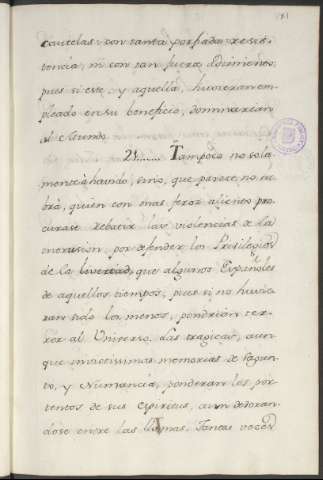 cautelas con tanta porfiada resis-
tencia, ni con tan fuera
pues si este, y aquella, huvieran em-
pleado en su beneficio, dominarian
al Mundo.
21....... Tampoco no sola
mente à havido, sino, que parece no ha
brá, quien con mas feroz aliento pro
curase rebatir las violencias de la
por defender los Privilegios
de la livertad, que algunos Españoles
de aquellos tiempos, pues si no huvie
ran sido los menos, pondrian ter-
ror al Universo. Las tragicas, aun
que invictissimas memorias de Sagun
to, y Numancia, ponderan los por
tentos de sus espiritus, aun devoran
dose entre las llamas. Tantas voces